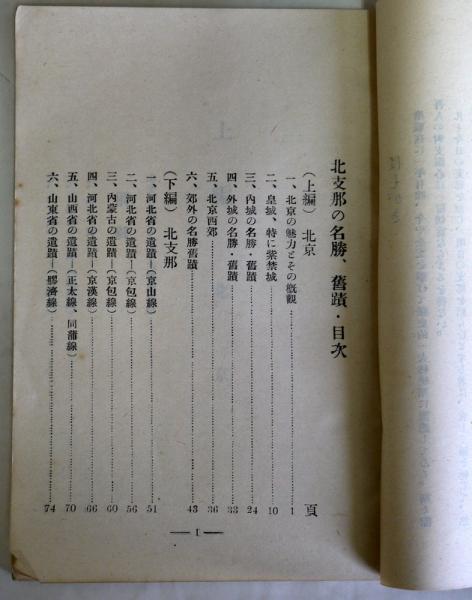 北支那の名勝、舊蹟・目次
頁
(上編) 北京
一、北京の魅力とその概觀 1
二、皇城、特に紫禁城 10
三、內城の名勝・舊蹟 24
四、外城の名勝・舊蹟 33
五、北京西郊 36
六、郊外の名勝舊蹟 43
(下編) 北支那
一、河北省の遺蹟―(京山線) 51
二、河北省の遺蹟―(京包線) 56
三、內蒙古の遺蹟―(京包線) 60
四、河北省の遺蹟―(京漢線) 66
五、山西省の遺蹟―(正太線、同蒲線) 70
六、山東省の遺蹟―(膠濟線) 74
― 1 ―